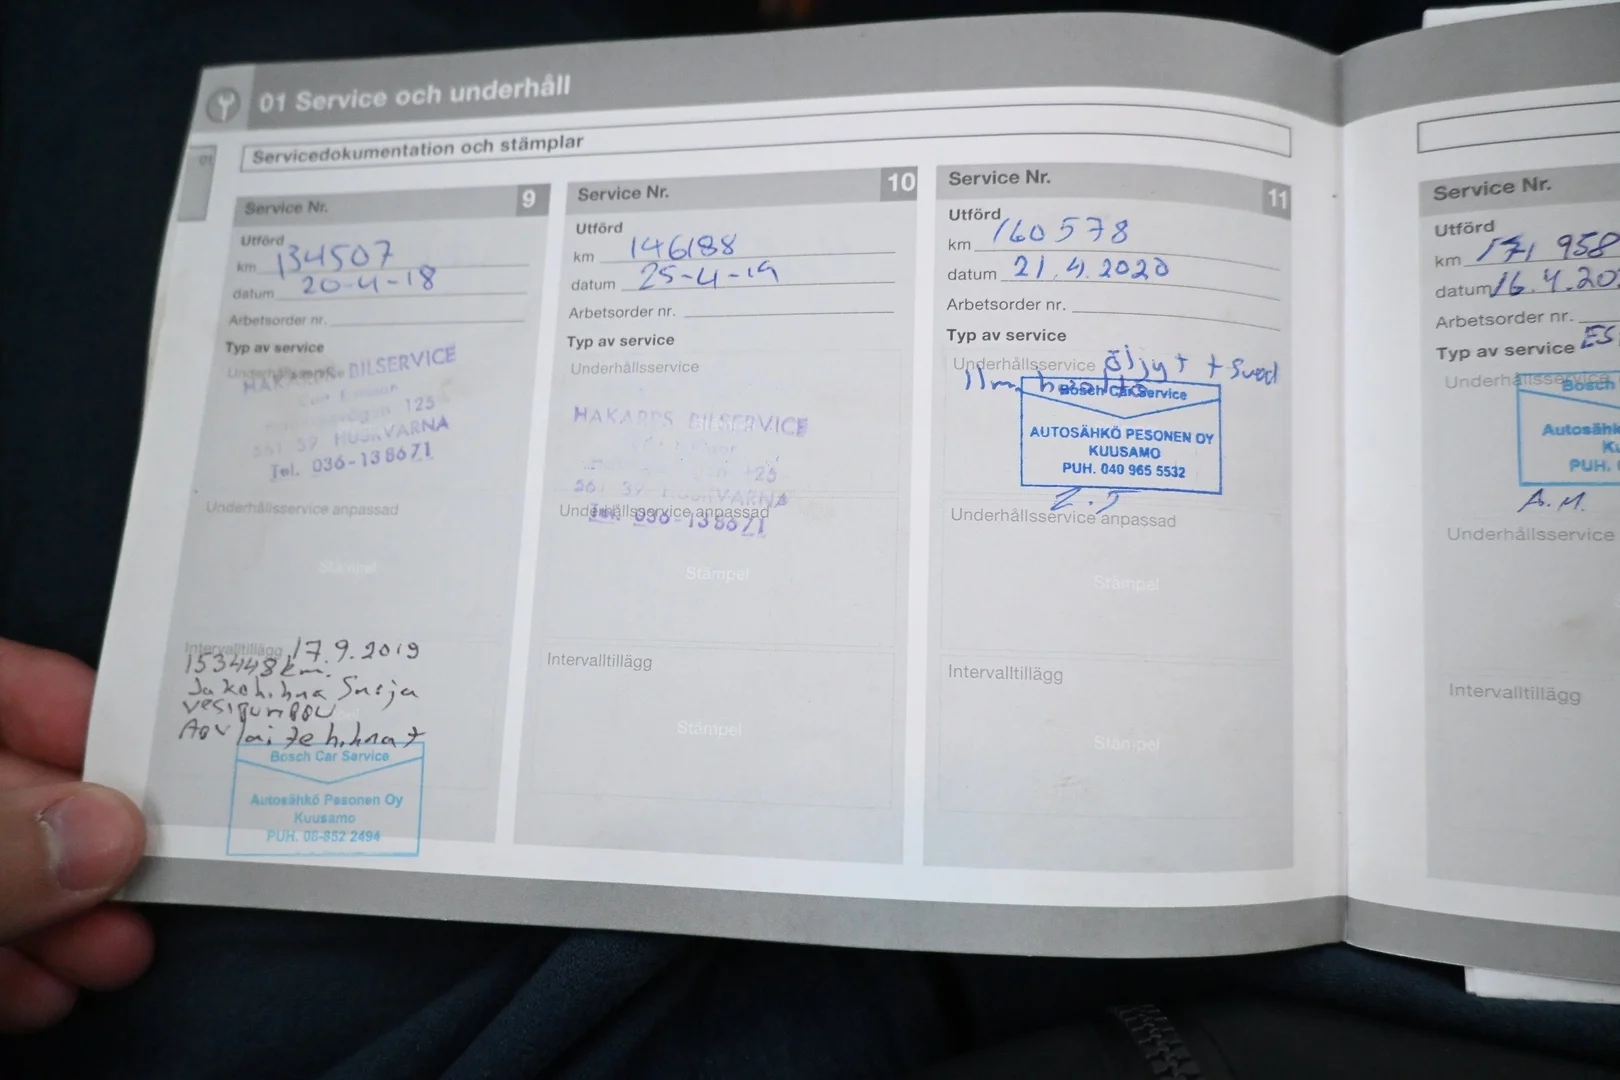 01 Service och underhåll
01
Servicedokumentation och stämplar
Service Nr. 9
Utförd
km 134507
datum 20-4-18
Arbetsorder nr.
Typ av service
Underhållsservice
BILSERVICE
125
561 39 HUSKVARNA
Tel. 036-138671
Underhållsservice anpassad
Stämpel
Intervalltillägg 17.9.2019
153448km.
Jakohihna Sarja
vesipumppu
Apulaitehihnat
Bosch Car Service
Autosähkö Pesonen Oy
Kuusamo
PUH. 08-852 2494
Service Nr. 10
Utförd
km 146188
datum 25-4-19
Arbetsorder nr.
Typ av service
Underhållsservice
HAKARPS BILSERVICE
561 39 HUSKVARNA
Underhållsservice anpassad
Tel. 036-138671
Stämpel
Intervalltillägg
Stämpel
Service Nr. 11
Utförd
km 160578
datum 21.4.2020
Arbetsorder nr.
Typ av service
Underhållsservice öljyt + Suod
Bosch Car Service
AUTOSÄHKÖ PESONEN OY
KUUSAMO
PUH. 040 965 5532
Underhållsservice anpassad
Stämpel
Intervalltillägg
Stämpel
Service Nr.
Utförd
km 171 958
datum 16.4.20
Arbetsorder nr.
Typ av service
Underhållsservice
Bosch
Autosähk
PUH.
A.M.
Underhållsservice
Intervalltillägg